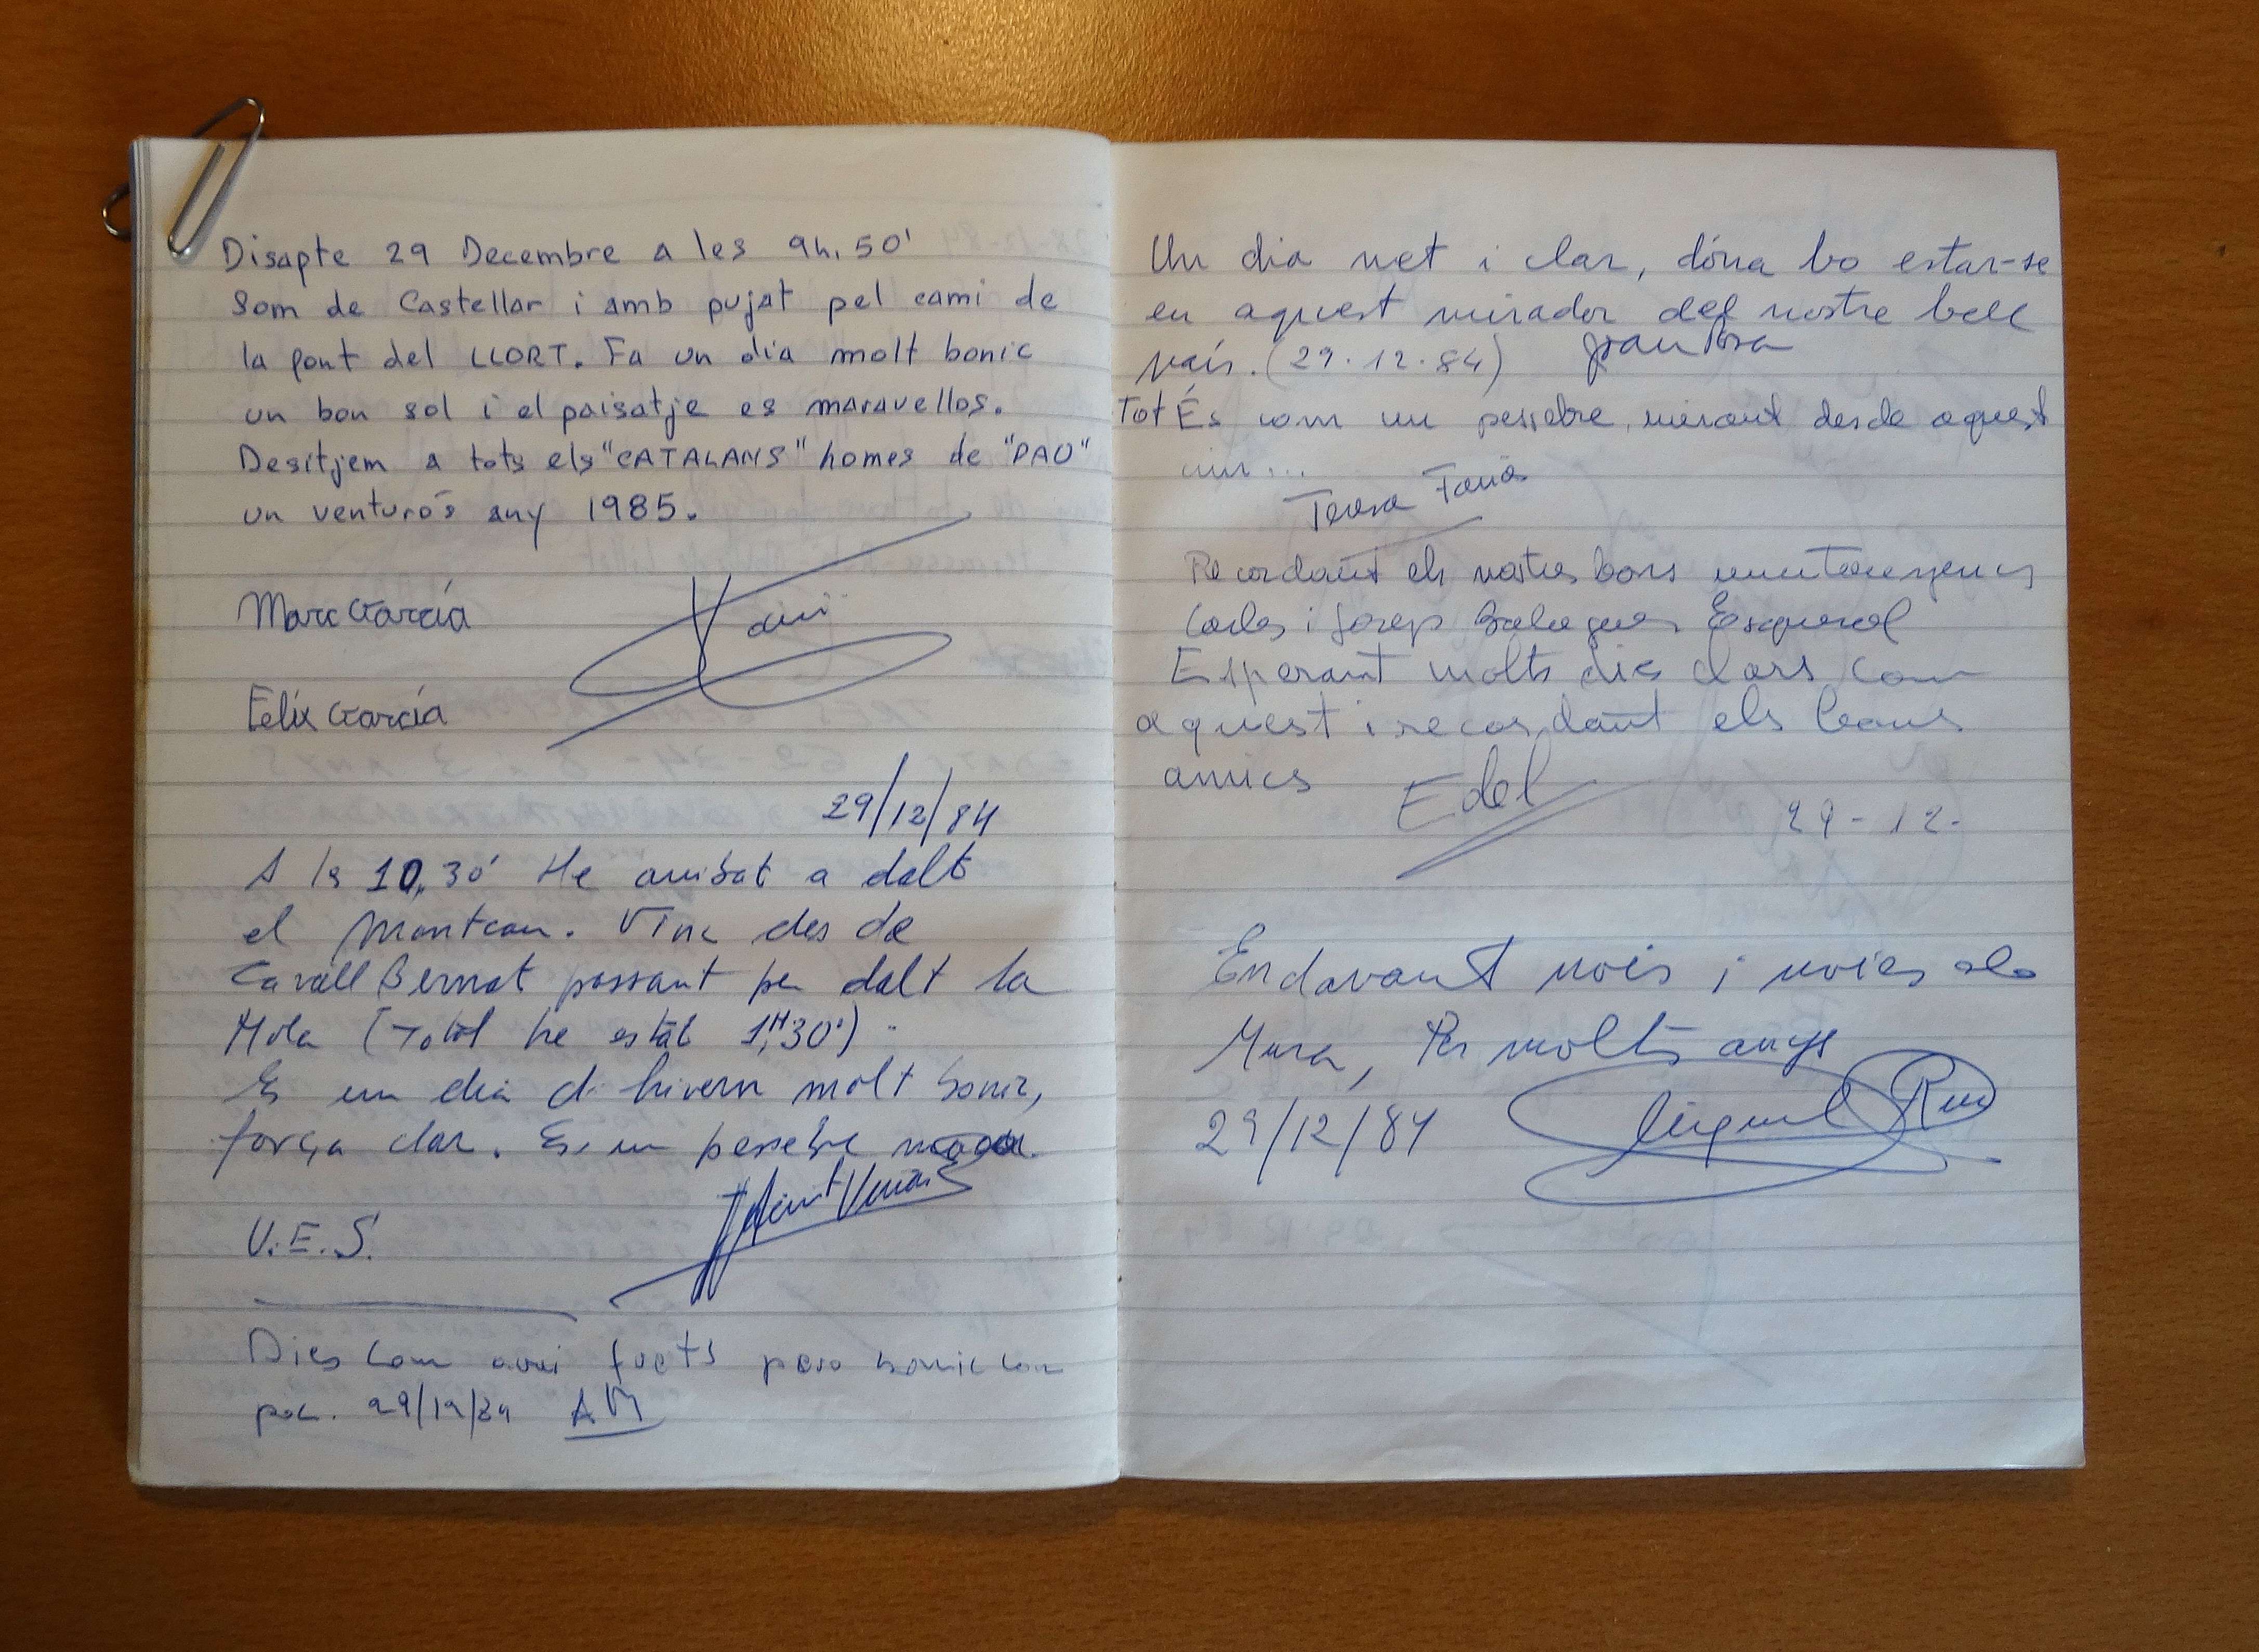 Disapte 29 Decembre a les 9h, 50'
Som de Castellar i amb pujat pel cami de
la font del LLORT. Fa un dia molt bonic
un bon sol i el paisatje es maravellos.
Desitjem a tots els "CATALANS" homes de "PAU"
un venturós any 1985.
Marc García
Felix García
29/12/84
A les 10,30' He arribat a dalt
el Montcau. Vinc des de
Cavall Bernat passant per dalt la
Mola (Total he estat 1H,30').
Es un dia d'hivern molt bonic,
força clar. Es un pessebre
U.E.S.
Dies com avui frets pero bonic com
poc. 29/12/84 AM
Un dia net i clar, dóna bo estar-se
en aquest mirador del nostre bell
país. (29.12.84)
Tot És com un pessebre, mirant desde aquest
cim...
Teresa
Recordant els nostres bons muntanyencs
Carles i Josep Balaguer Esquerol
Esperant molts dies clars com
aquest i recordant els bons
amics Edel
29-12-
Endavant nois i noies de
Mura, Per molts anys
29/12/84 Miquel